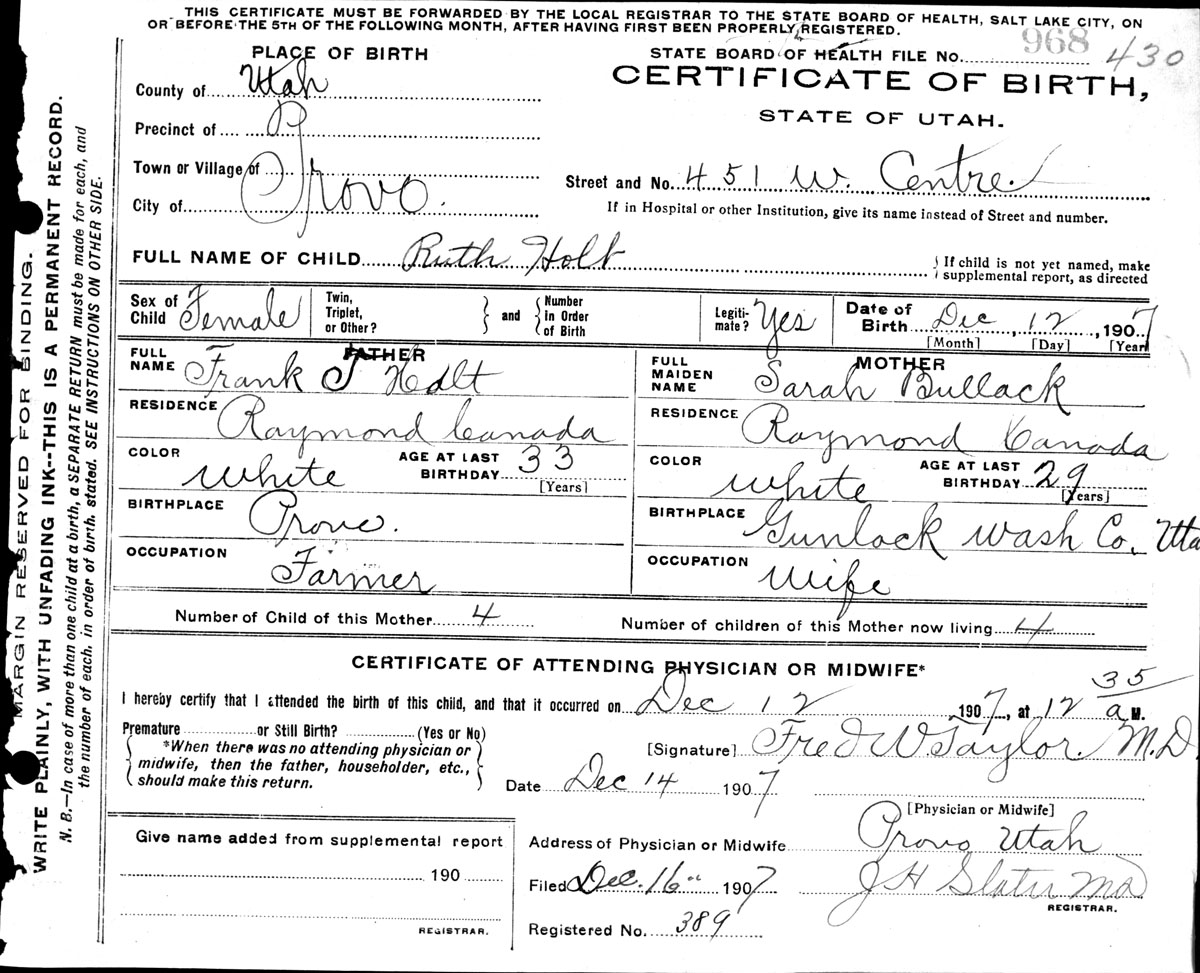 THIS CERTIFICATE MUST BE FORWARDED BY THE LOCAL REGISTRAR TO THE STATE BOARD OF HEALTH, SALT LAKE CITY, ON
OR BEFORE THE 5TH OF THE FOLLOWING MONTH, AFTER HAVING FIRST BEEN PROPERLY REGISTERED.
PLACE OF BIRTH
STATE BOARD OF HEALTH FILE No. 968 430
CERTIFICATE OF BIRTH,
STATE OF UTAH.
County of Utah
Precinct of P
Town or Village of
City of Provo.
Street and No. 451 W. Centre
If in Hospital or other Institution, give its name instead of Street and number.
FULL NAME OF CHILD Ruth Holt
If child is not yet named, make
supplemental report, as directed
Sex of
Child Female
Twin,
Triplet,
or Other?
and
Number
In Order
of Birth
Legiti-
mate? Yes
Date of
Birth Dec 12, 1907
[Month] [Day] [Year]
FATHER
FULL
NAME Frank J Holt
RESIDENCE Raymond Canada
COLOR White
AGE AT LAST
BIRTHDAY 33
[Years]
BIRTHPLACE Provo.
OCCUPATION Farmer
MOTHER
FULL
MAIDEN
NAME Sarah Bullock
RESIDENCE Raymond Canada
COLOR White
AGE AT LAST
BIRTHDAY 29
[Years]
BIRTHPLACE Gunlock Wash Co. Uta
OCCUPATION Wife
Number of Child of this Mother 4
Number of children of this Mother now living 4
CERTIFICATE OF ATTENDING PHYSICIAN OR MIDWIFE*
I hereby certify that I attended the birth of this child, and that it occurred on Dec 12 1907, at 12 35 a M.
Premature or Still Birth? (Yes or No)
*When there was no attending physician or
midwife, then the father, householder, etc.,
should make this return.
[Signature] Fred W Taylor. M.D
Date Dec 14 1907
[Physician or Midwife]
Give name added from supplemental report
190
REGISTRAR.
Address of Physician or Midwife Provo Utah
Filed Dec. 16" 1907 J H Slater MD
REGISTRAR.
Registered No. 389
MARGIN RESERVED FOR BINDING.
WRITE PLAINLY, WITH UNFADING INK--THIS IS A PERMANENT RECORD.
N. B.—In case of more than one child at a birth, a SEPARATE RETURN must be made for each, and
the number of each, in order of birth, stated. SEE INSTRUCTIONS ON OTHER SIDE.